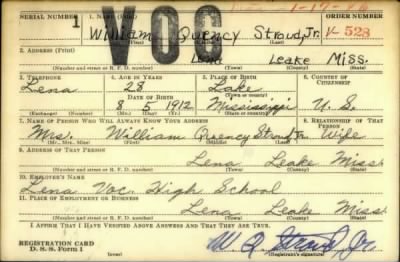 SERIAL NUMBER 1. NAME (Print) ORDER NUMBER
1 William Quency Stroud, Jr. V-528
(First) (Middle) (Last)
VOC
2. ADDRESS (Print)
Lena Leake Miss.
(Number and street or R. F. D. number) (Town) (County) (State)
3. TELEPHONE 4. AGE IN YEARS 5. PLACE OF BIRTH 6. COUNTRY OF CITIZENSHIP
Lena 28 Lake
DATE OF BIRTH (Town or county)
8 5 1912 Mississippi U. S.
(Exchange) (Number) (Mo.) (Day) (Yr.) (State or country)
7. NAME OF PERSON WHO WILL ALWAYS KNOW YOUR ADDRESS 8. RELATIONSHIP OF THAT PERSON
Mrs. William Quency Stroud Jr. Wife
(Mr., Mrs., Miss) (First) (Middle) (Last)
9. ADDRESS OF THAT PERSON
Lena Leake Miss.
(Number and street or R. F. D. number) (Town) (County) (State)
10. EMPLOYER'S NAME
Lena Voc. High School
11. PLACE OF EMPLOYMENT OR BUSINESS
Lena Leake Miss.
(Number and street or R. F. D. number) (Town) (County) (State)
I AFFIRM THAT I HAVE VERIFIED ABOVE ANSWERS AND THAT THEY ARE TRUE.
REGISTRATION CARD
D. S. S. Form 1
W Q Stroud Jr
(Registrant's signature)